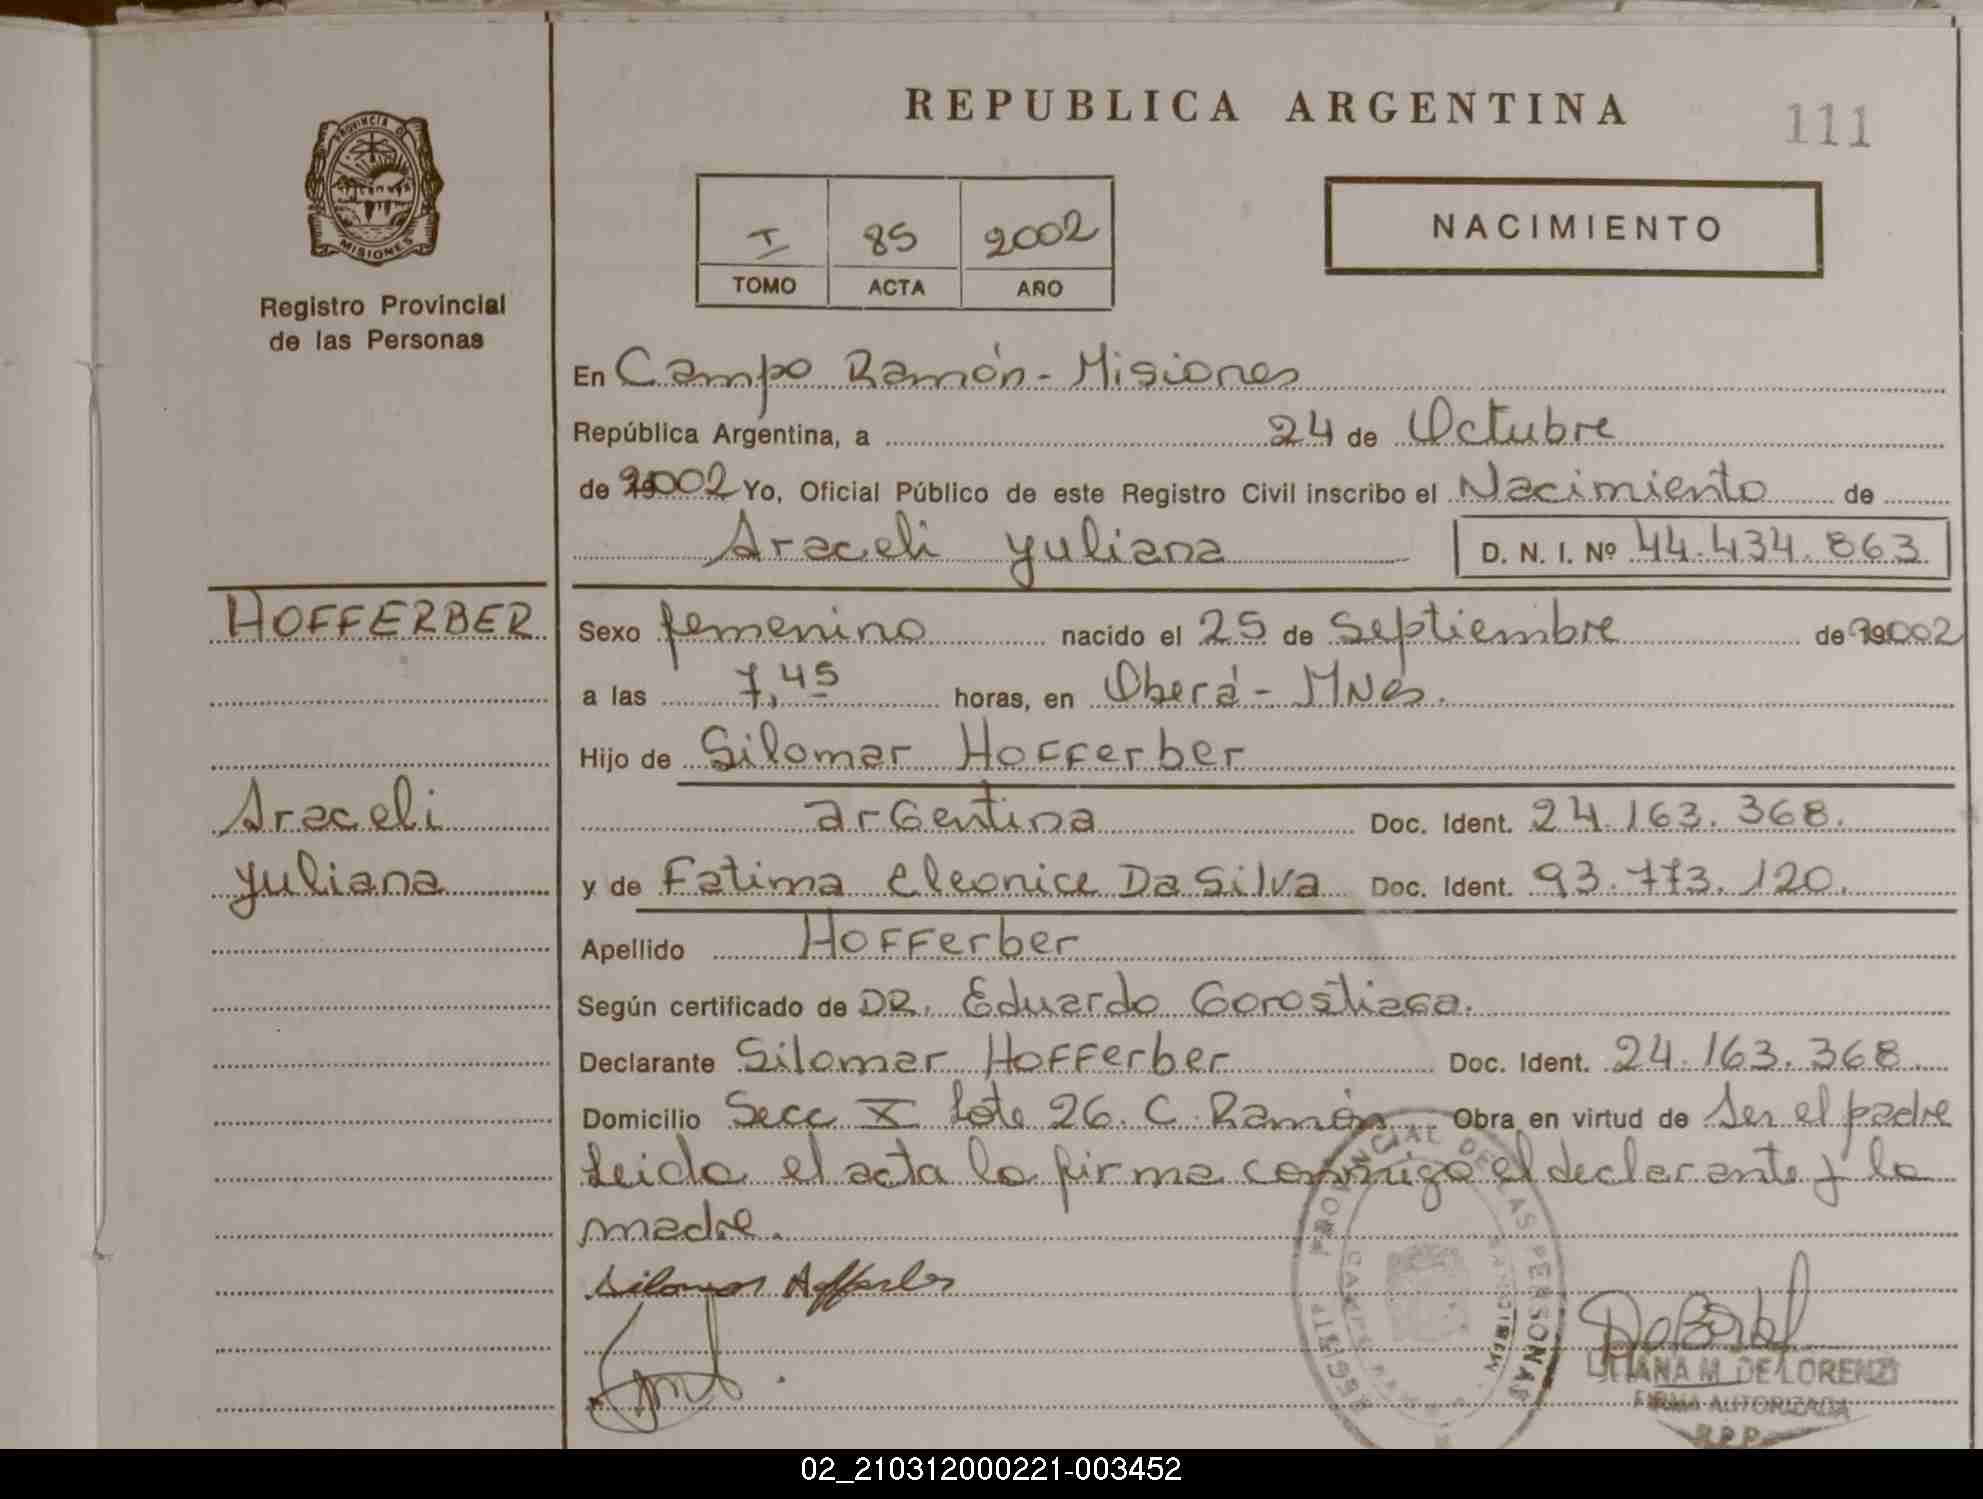 REPUBLICA ARGENTINA
111
PROVINCIA D
MISIONES
Registro Provincial
de las Personas
I 85 2002
TOMO ACTA AÑO
NACIMIENTO
En Campo Ramón - Misiones
República Argentina, a 24 de Octubre
de 2002 Yo, Oficial Público de este Registro Civil inscribo el Nacimiento de
Araceli Yuliana D. N. I. Nº 44.434.863
HOFFERBER
Araceli
Yuliana
Sexo femenino nacido el 25 de Septiembre de 2002
a las 7,45 horas, en Oberá - Mnes.
Hijo de Silomar Hofferber
argentina Doc. Ident. 24.163.368.
y de Fatima Eleonice Da Silva Doc. Ident. 93.773.120.
Apellido Hofferber
Según certificado de DR. Eduardo Gorostiaga.
Declarante Silomar Hofferber Doc. Ident. 24.163.368
Domicilio Secc X Lote 26. C. Ramón Obra en virtud de Ser el padre
Leida el acta la firma conmigo el declarante y la
madre.
Silomar Hofferber
PROVINCIAL DE LAS PERSONAS
LILIANA M. DE LORENZI
FIRMA AUTORIZADA
R.P.P.
02_210312000221-003452